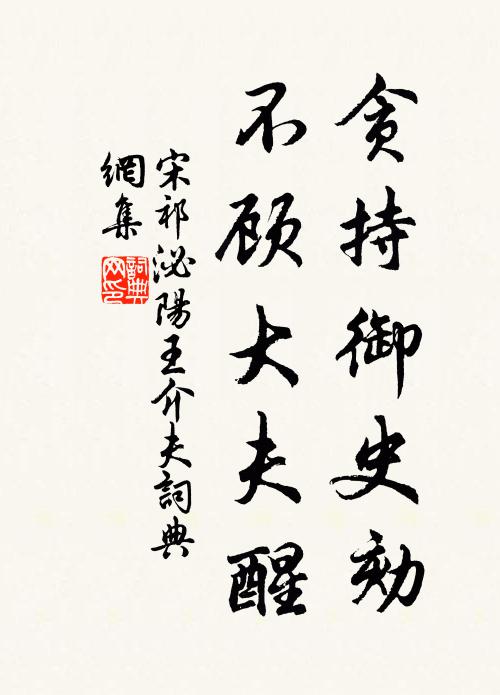 贪持御史劾
不顾大夫醒
宋祁泌陽王介夫詞典
網集
詞典
网印